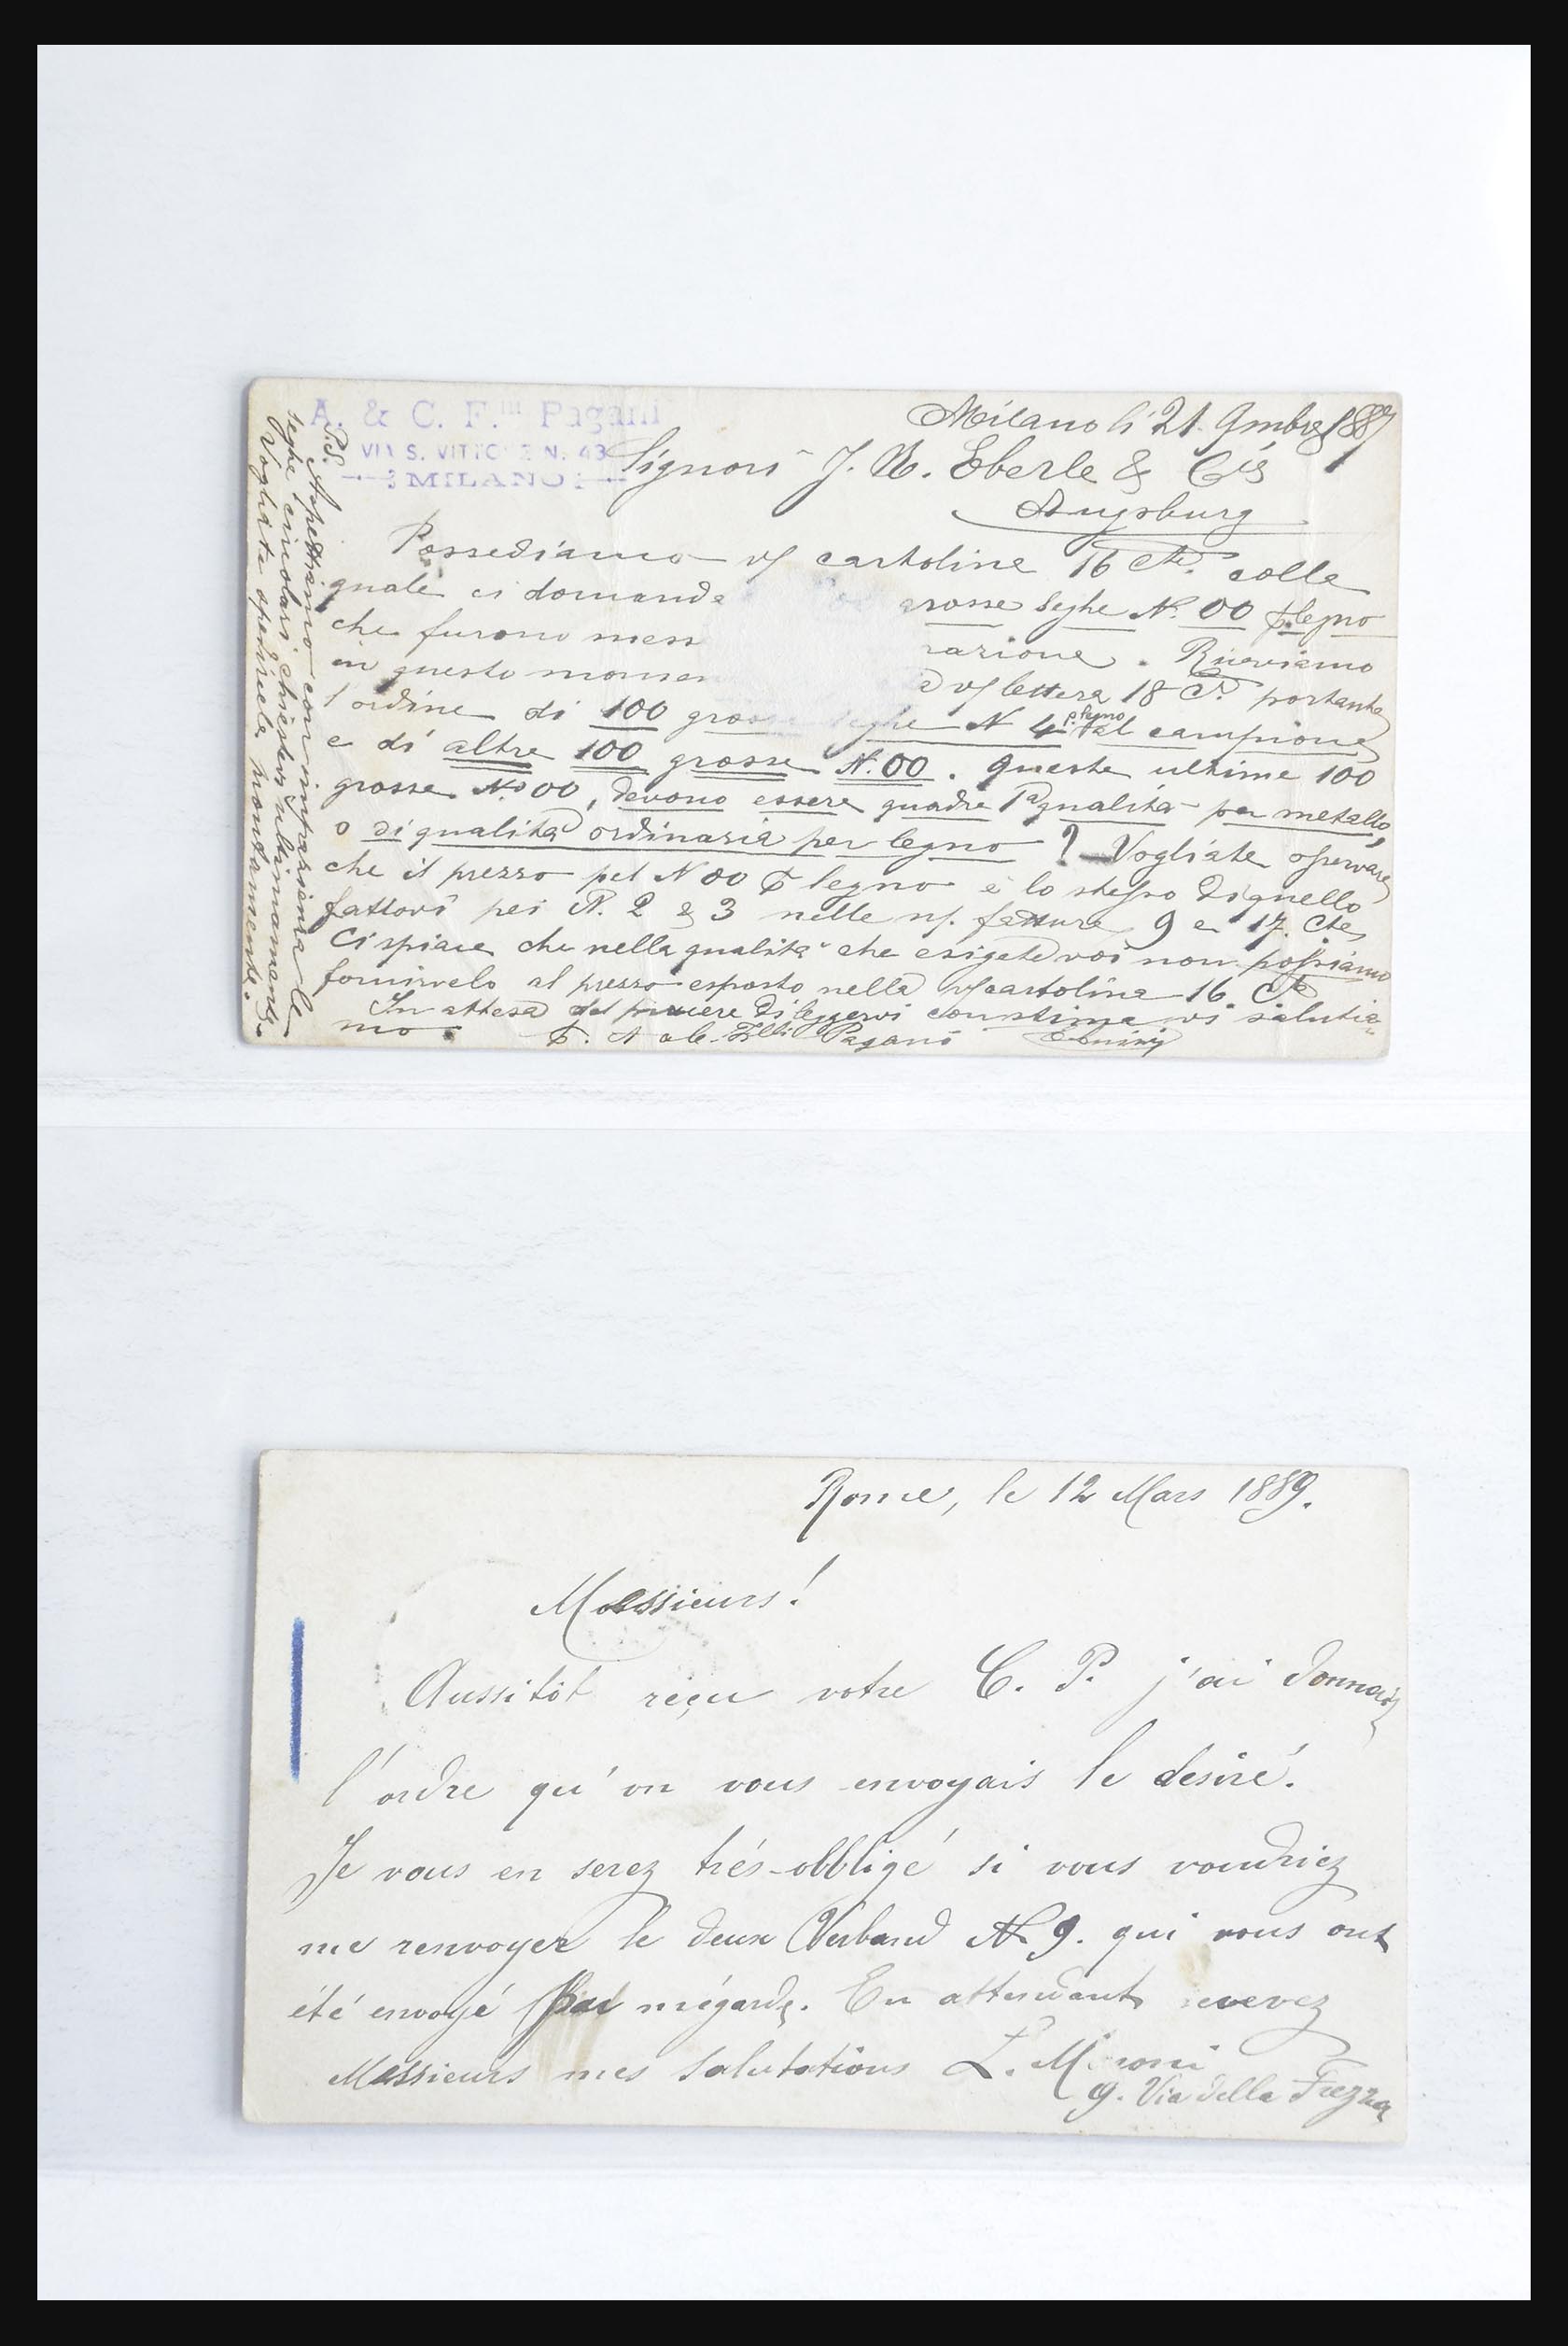 A. & C. F.lli Pagani
VIA S. VITTORE N. 43
MILANO
Milano li 21. 9mbre 1887
Signori J. N. Eberle & Cie
Augsburg
Possediamo v/ cartolina 16 Cte. colla
quale ci domanda grosse seghe No. 00 p. legno
che furono mess razione. Riceviamo
in questo momen a v/ lettera 18 Ct. portante
l'ordine di 100 grosse seghe N 4 p. legno al campione
e di altre 100 grosse N. 00. Queste ultime 100
grosse No 00, devono essere quadre 1a qualità per metallo,
o di qualità ordinaria per legno? Vogliate osservare
che il prezzo pel N 00 p legno è lo stesso di quello
fattovi pei N. 2 & 3 nelle n/. fatture 9 e 17. Cte,
Ci spiace che nella qualità che esigete voi non possiamo
fornirvelo al prezzo esposto nella v/ cartolina 16. Cte
In attesa del piacere di leggervi con stima vi salutia-
mo
p. A & C. Flli Pagani
P.S. Aspettiamo con impazienza le
seghe circolari chiestevi ultimamente.
Vogliate spedircele prontamente.
Rome, le 12 Mars 1889.
Messieurs!
Aussitôt reçu votre C. P. j'ai donnai
l'ordre qu'on vous envoyais le desiré.
Je vous en serez trés-obbligé si vous voudriez
me renvoyer le deux Verband N 9. qui vous ont
été envoyé par mégarde. En attendant recevez
Messieurs mes salutations L.
9. Via della Frezza